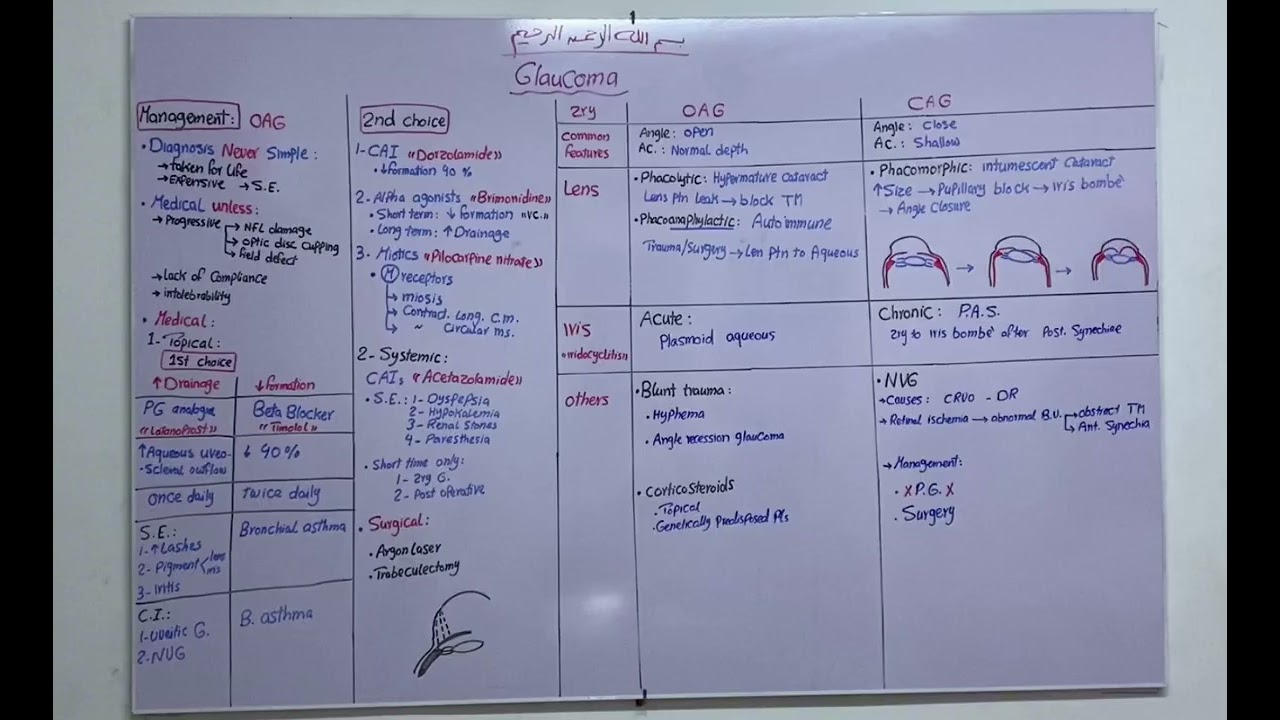 بسم الله الرحمن الرحيم
Glaucoma
Management: OAG
• Diagnosis Never Simple:
→ taken for life
→ Expensive → S.E.
• Medical unless:
→ Progressive → NFL damage
→ optic disc cupping
→ field defect
→ lack of compliance
→ intolebrability
• Medical:
1- Topical:
1st choice
↑Drainage ↓formation
PG analogue Beta Blocker
"Latanoprost" "Timolol"
↑Aqueous uveo- ↓ 40%
-Scleral outflow
once daily twice daily
S.E.: Bronchial asthma
1- ↑Lashes
2- Pigment < lens
ms
3- Iritis
C.I.: B. asthma
1- uveitic G.
2- NVG
2nd choice
1- CAI «Dorzolamide»
• ↓formation 40 %
2- Alpha agonists «Brimonidine»
• Short term: ↓ formation "VC."
• Long term: ↑ Drainage
3- Miotics «Pilocarpine nitrate»
• M receptors
→ miosis
→ Contract. Long. C.m.
→ ~ Circular ms.
2- Systemic:
CAIs «Acetazolamide»
• S.E.: 1- Dyspepsia
2- Hypokalemia
3- Renal Stones
4- Paresthesia
• Short time only:
1- 2ry G.
2- Post operative
• Surgical:
• Argon laser
• Trabeculectomy
2ry OAG CAG
common features
Angle: open
AC.: Normal depth
Angle: Close
AC.: Shallow
Lens
• Phacolytic: Hypermature cataract
Lens Ptn Leak → block TM
• Phacoanaphylactic: Autoimmune
Trauma/Surgery → Len Ptn to Aqueous
• Phacomorphic: intumescent Cataract
↑Size → Pupillary block → iris bombé
→ Angle closure
Iris
"iridocyclitis"
Acute:
Plasmoid aqueous
Chronic: P.A.S.
2ry to iris bombé after Post. Synechiae
others
• Blunt trauma:
• Hyphema
• Angle recession glaucoma
• Corticosteroids
• Topical
• Genetically Predisposed Pts
• NVG
→ Causes: CRVO - DR
→ Retinal ischemia → abnormal B.V. → obstract TM
→ Ant. Synechia
→ Management:
• X P.G. X
• Surgery